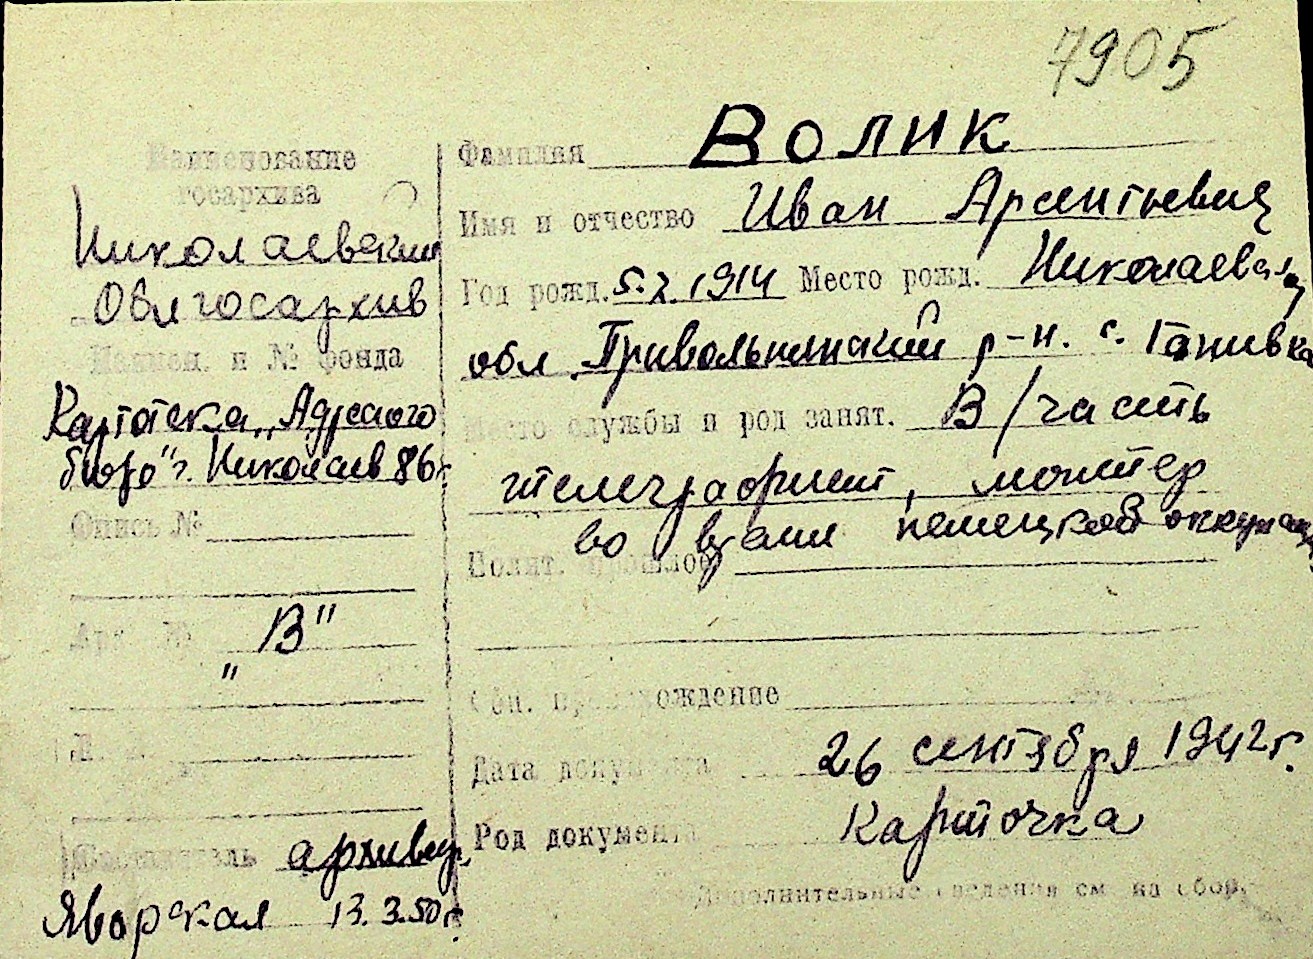 7905
Наименование
госархива
Николаевский
Облгосархив
Наимен. и № фонда
Картотека „Адресного
бюро" г. Николаев 86г.
Опись №
Арх. №
„В"
Составитель архивар.
Яворская 13.3.50г.
Фамилия Волик
Имя и отчество Иван Арсентьевич
Год рожд. 5.2.1914 Место рожд. Николаевская
обл. Привольнянский р-н. с. Ганивка
Место службы и род занят. В/часть
телеграфист, монтер
во время немецкой оккупации
Полит. прошлое
Соц. происхождение
Дата документа 26 сентября 1942 г.
Род документа Карточка
Дополнительные сведения см. на обор.